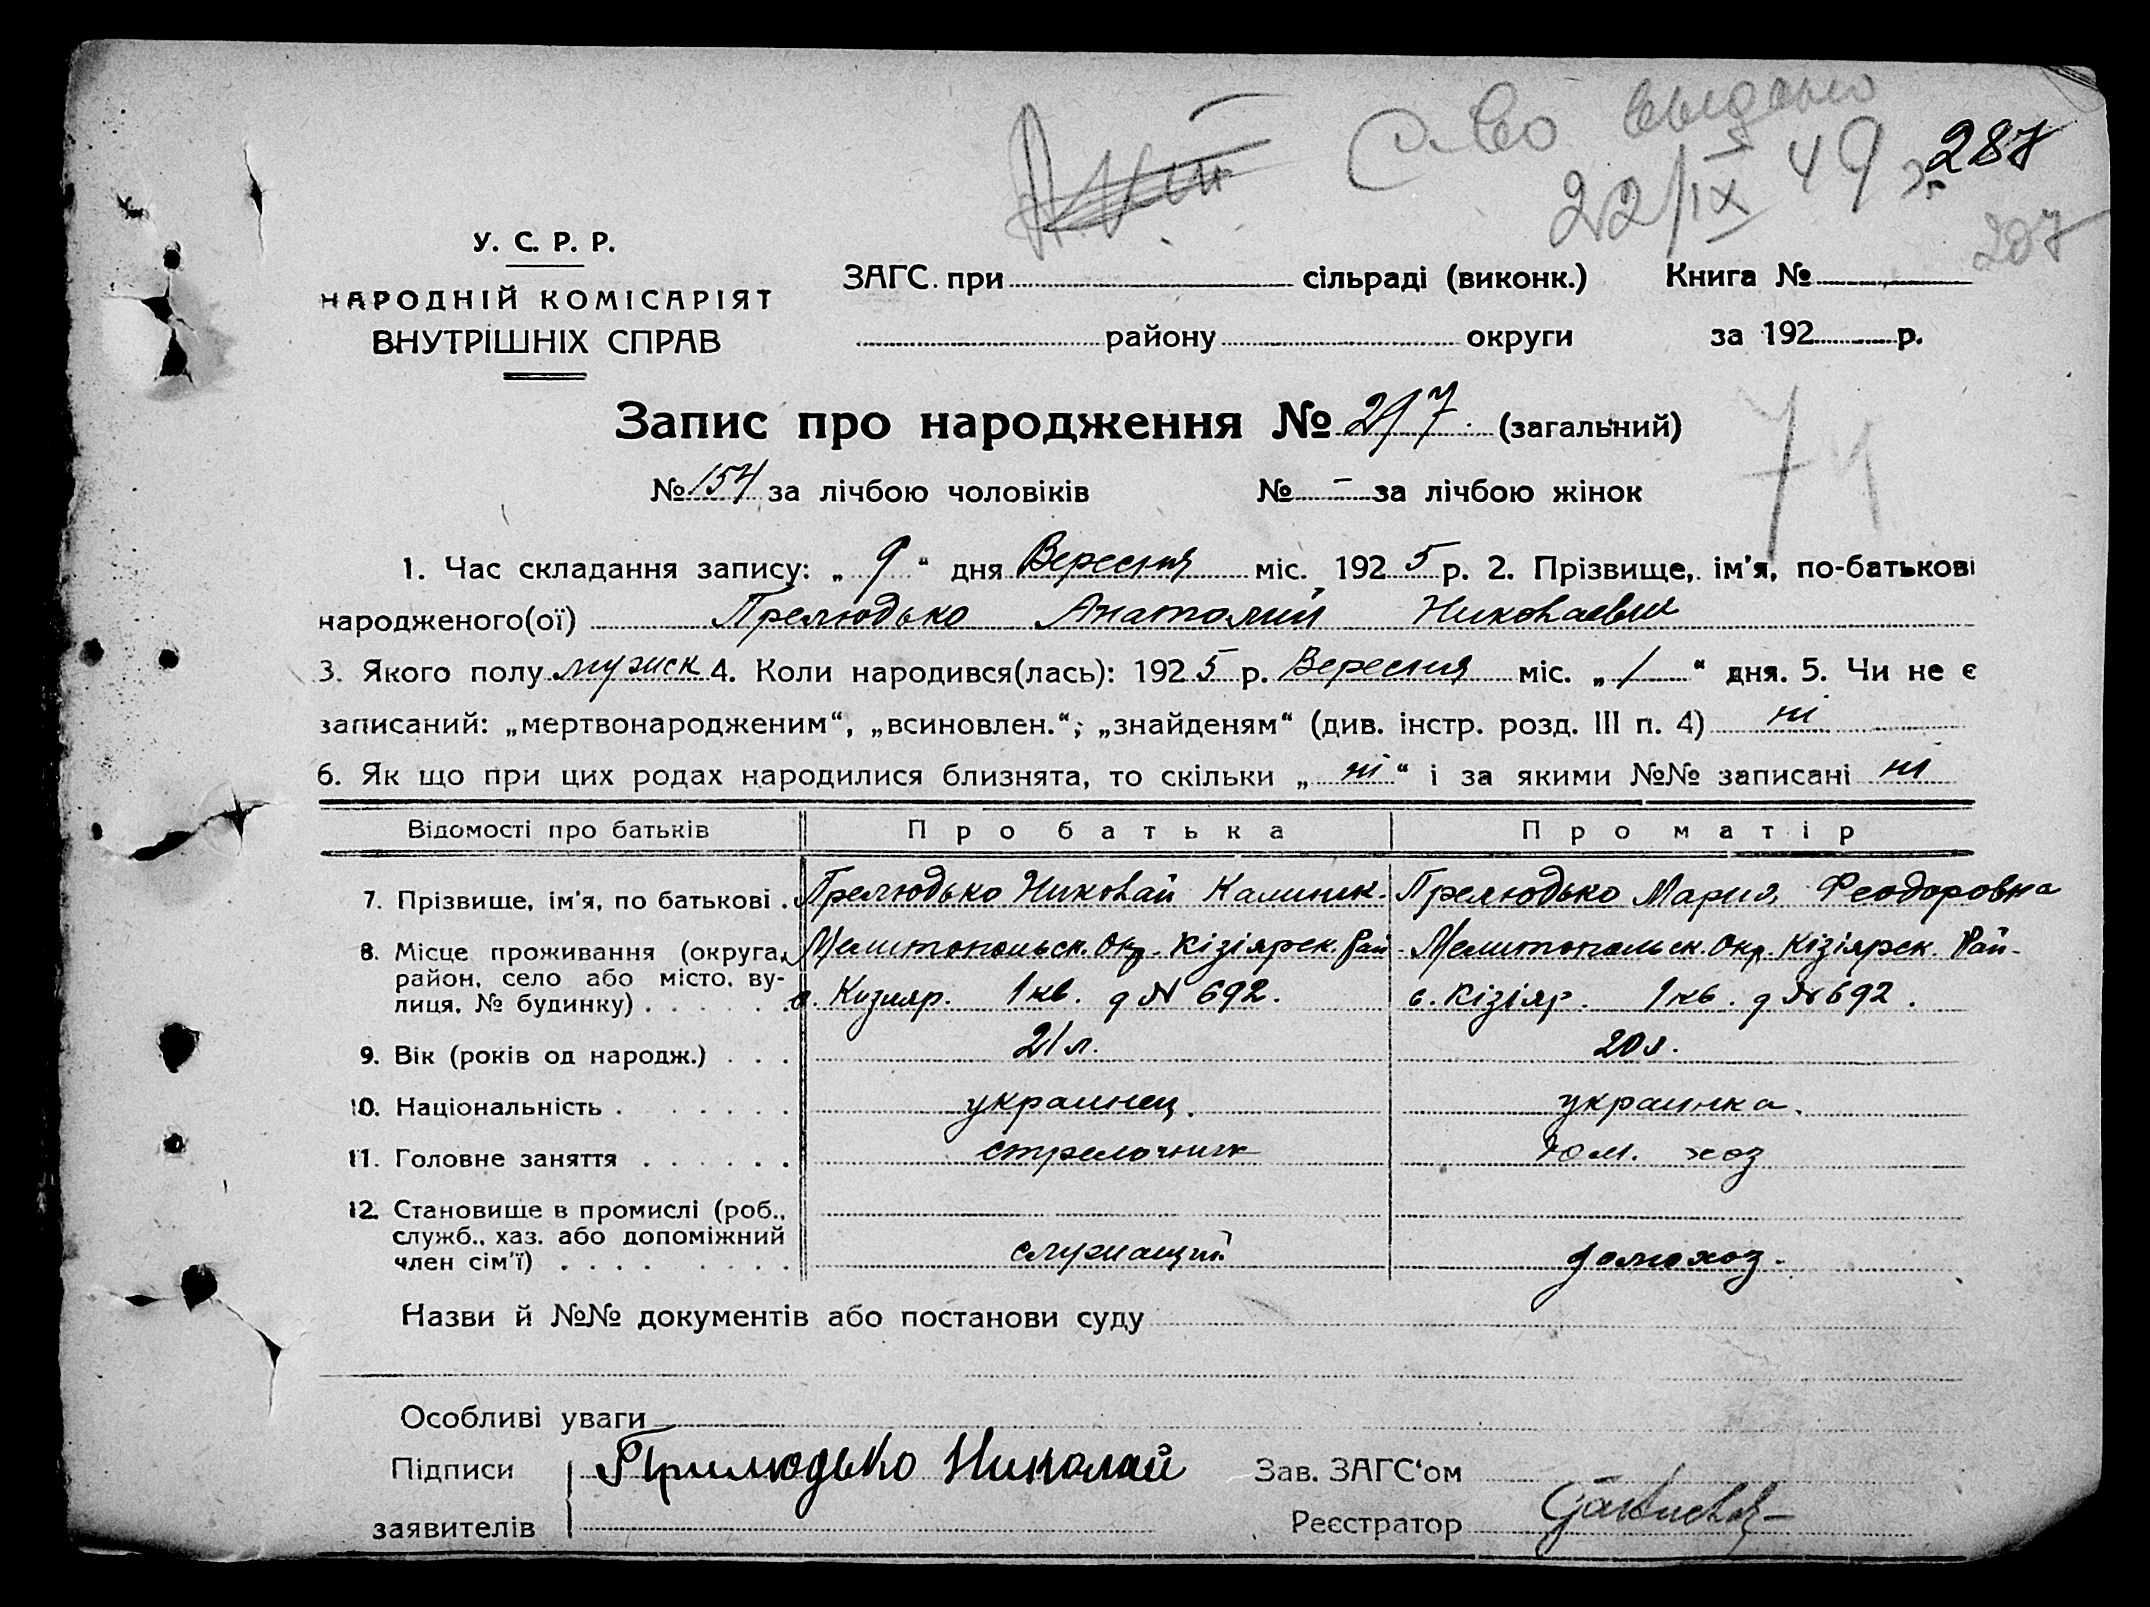 С-во выдано
22/IX 49 г.
287
207
У. С. Р. Р.
НАРОДНІЙ КОМІСАРІЯТ
ВНУТРІШНІХ СПРАВ
ЗАГС. при сільраді (виконк.) Книга №
району округи за 192 р.
Запис про народження № 297. (загальний)
74
№ 154 за лічбою чоловіків № - за лічбою жінок
1. Час складання запису: „ 9 “ дня Вересня міс. 192 5 р. 2. Прізвище, ім'я, по-батькові
народженого(ої) Прелюдько Анатолий Николаевич
3. Якого полу мужск 4. Коли народився(лась): 192 5 р. Вересня міс. „ 1 “ дня. 5. Чи не є
записаний: „мертвонародженим“, „всиновлен.“; „знайденям“ (див. інстр. розд. III п. 4) ні
6. Як що при цих родах народилися близнята, то скільки „ ні “ і за якими №№ записані ні
Відомості про батьків Про батька Про матір
7. Прізвище, ім'я, по батькові . Прелюдько Николай Калиник. Прелюдько Мария Феодоровна
8. Місце проживання (округа, Мелитопольск. Окр. Кізіярск. Рай Мелитопольск. Окр. Кізіярск. Рай-
район, село або місто, ву-
лиця, № будинку) . . . . . . с. Кизияр. 1 кв. д № 692. с. Кізіяр. 1 кв. д № 692.
9. Вік (років од народж.) . . . 21 л. 20 л.
10. Національність . . . . . . . украинец. украинка.
11. Головне заняття . . . . . . стрелочник дом. хоз
12. Становище в промислі (роб.,
служб., хаз. або допоміжний
член сім'ї) . . . . . . . . служащий домохоз.
Назви й №№ документів або постанови суду
Особливі уваги
Підписи Прилюдько Николай Зав. ЗАГС'ом
заявителів Реєстратор